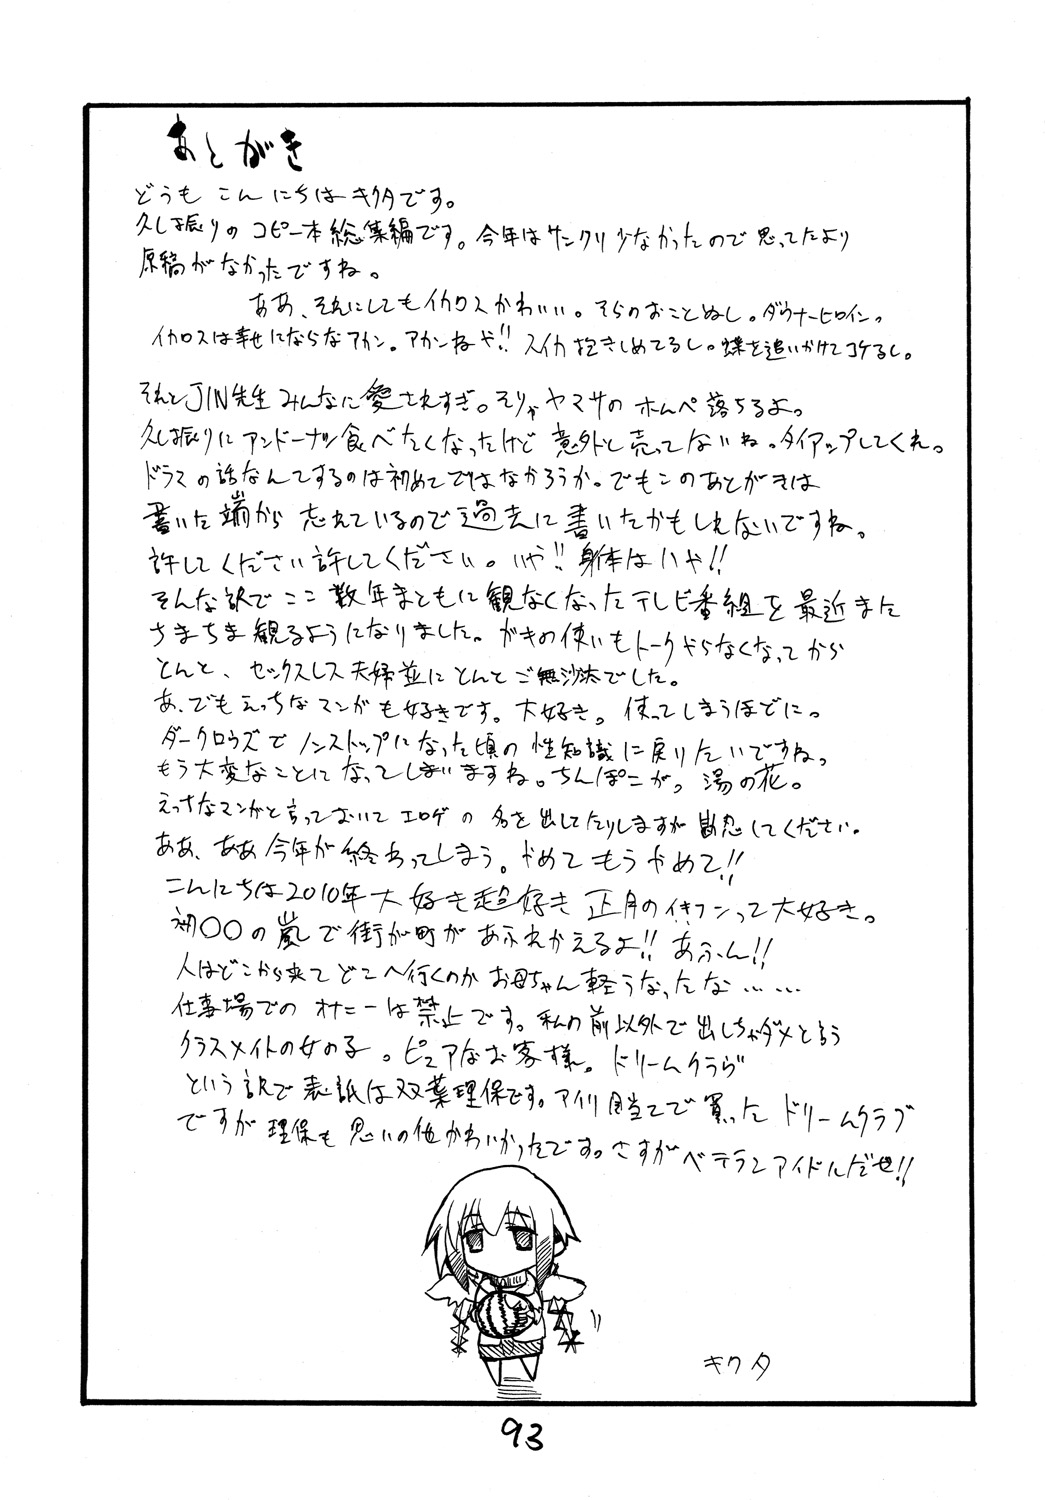 あとがき
どうも こんにちは キクタです。
久し振りの コピー本総集編です。今年は サンクリ 少なかったので 思ってたより
原稿がなかったですね。
ああ、それにしてもイカロスかわいい。そらのおとしもの。ダウナーヒロイン。
イカロスは幸せにならなアカン。アカンねや!! スイカ抱きしめてるし。蝶を追いかけてコケるし。
それとJIN先生みんなに愛されすぎ。そりゃヤマサの ホムペ落ちるよ。
久し振りに アンドーナツ食べたくなったけど 意外と売ってないね。タイアップしてくれ。
ドラマの話なんてするのは初めてではなかろうか。でもこのあとがきは
書いた端から 忘れているので過去に書いたかもしれないですね。
許してください許してください。いや!! 身体はいや!!
そんな訳でここ数年まともに観なくなったテレビ番組を最近また
ちまちま観るようになりました。ガキの使いもトークやらなくなってから
とんと、セックスレス夫婦並にとんとご無沙汰でした。
あ、でもえっちなマンガも好きです。大好き。使ってしまうほどに。
ダークロウズで ノンストップになった頃の性知識に戻りたいですね。
もう大変なことになってしまいますね。ちんぽこが。湯の花。
えっちなマンガと言っておいて エロゲの 名を出してたりしますが 勘忍してください。
ああ、ああ今年が終わってしまう。やめてもうやめて!!
こんにちは2010年大好き超好き 正月のフンイキって大好き。
初〇〇の嵐で街が町があふれかえるよ!! あふん!!
人はどこから来てどこへ行くのか お母ちゃん軽うなったな……
仕事場でのオナニーは禁止です。私の前以外で出しちゃダメと言う
クラスメイトの女の子。ピュアなお客様。ドリームクラヴ
という訳で表紙は双葉理保です。アイリ目当てで買ったドリームクラブ
ですが理保も思いの他かわいかったです。さすがベテランアイドルだぜ!!
キクタ
93